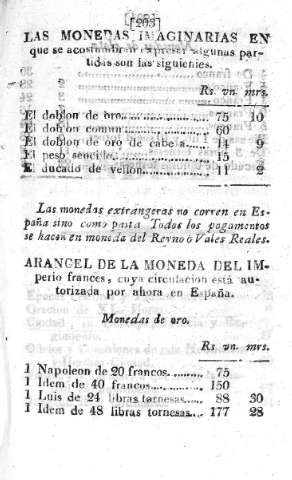 [203]
LAS MONEDAS IMAGINARIAS EN
que se acostumbran expresar algunas par-
tidas son las siguientes.
Rs. vn. mrs.
El doblon de oro......... 75 10
El doblon comun......... 60
El doblon de oro de cabeza... 14 9
El peso sencillo......... 15
El ducado de vellon......... 11 2
Las monedas extrangeras no corren en Es-
paña sino como pasta Todos los pagamentos
se hacen en moneda del Reyno ó Vales Reales.
ARANCEL DE LA MONEDA DEL IM-
perio frances, cuya circulacion está au-
torizada por ahora en España.
Monedas de oro.
Rs. vn. mrs.
1 Napoleon de 20 francos......... 75
1 Idem de 40 francos......... 150
1 Luis de 24 libras tornesas..... 88 30
1 Idem de 48 libras tornesas.... 177 28